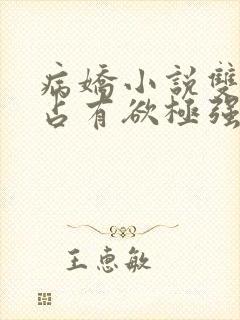 病嬌小說雙
占有欲極强
王惠敏